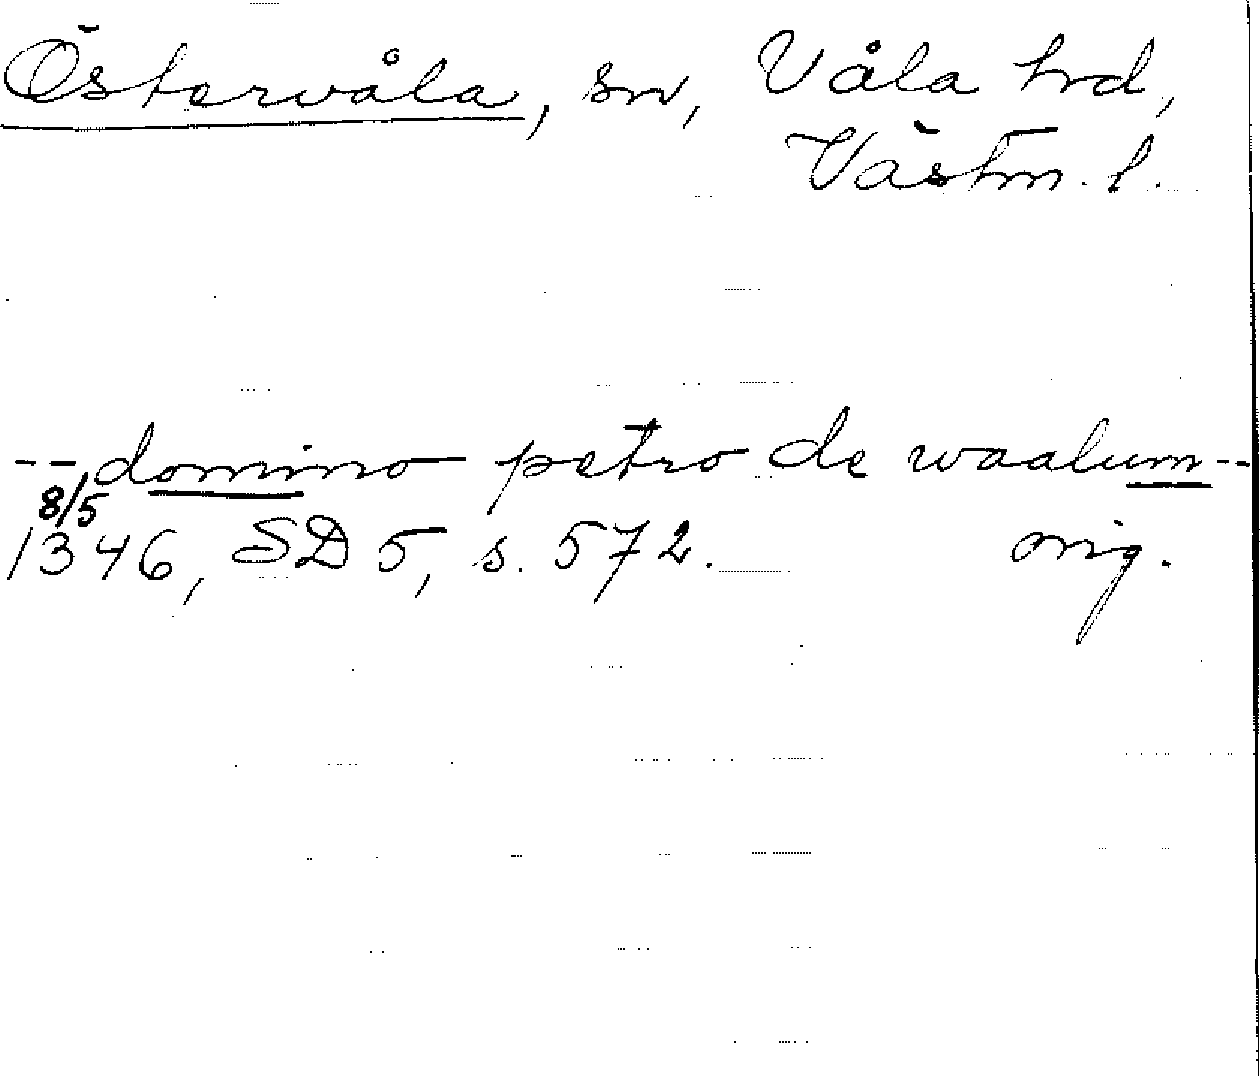 Östervåla, sn, Våla hd,
Västm. l.
-- domino petro de waalum --
8/5
1346, SD 5, s. 572. orig.